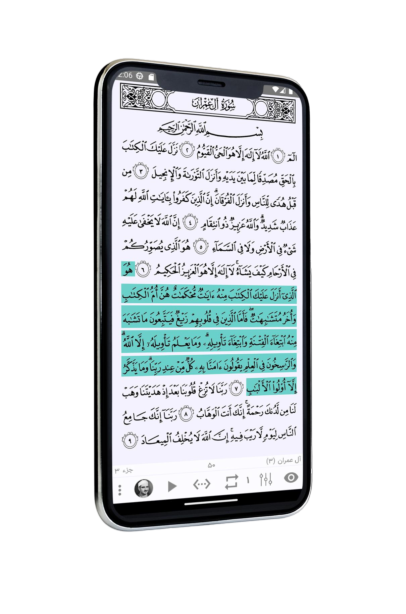 2:06
سُورَةُ آلِ عِمْرَانَ
بِسْمِ اللَّهِ الرَّحْمَٰنِ الرَّحِيمِ
الٓمٓ ﴿١﴾ اللَّهُ لَا إِلَٰهَ إِلَّا هُوَ الْحَيُّ الْقَيُّومُ ﴿٢﴾ نَزَّلَ عَلَيْكَ الْكِتَٰبَ
بِالْحَقِّ مُصَدِّقًا لِّمَا بَيْنَ يَدَيْهِ وَأَنزَلَ التَّوْرَىٰةَ وَالْإِنجِيلَ ﴿٣﴾ مِن
قَبْلُ هُدًى لِّلنَّاسِ وَأَنزَلَ الْفُرْقَانَ إِنَّ الَّذِينَ كَفَرُوا بِـَٔايَٰتِ اللَّهِ لَهُمْ
عَذَابٌ شَدِيدٌ وَاللَّهُ عَزِيزٌ ذُو انتِقَامٍ ﴿٤﴾ إِنَّ اللَّهَ لَا يَخْفَىٰ عَلَيْهِ
شَىْءٌ فِي الْأَرْضِ وَلَا فِي السَّمَاءِ ﴿٥﴾ هُوَ الَّذِي يُصَوِّرُكُمْ
فِي الْأَرْحَامِ كَيْفَ يَشَاءُ لَا إِلَٰهَ إِلَّا هُوَ الْعَزِيزُ الْحَكِيمُ ﴿٦﴾ هُوَ
الَّذِي أَنزَلَ عَلَيْكَ الْكِتَٰبَ مِنْهُ ءَايَٰتٌ مُّحْكَمَٰتٌ هُنَّ أُمُّ الْكِتَٰبِ
وَأُخَرُ مُتَشَٰبِهَٰتٌ فَأَمَّا الَّذِينَ فِي قُلُوبِهِمْ زَيْغٌ فَيَتَّبِعُونَ مَا تَشَٰبَهَ
مِنْهُ ابْتِغَاءَ الْفِتْنَةِ وَابْتِغَاءَ تَأْوِيلِهِ وَمَا يَعْلَمُ تَأْوِيلَهُ إِلَّا اللَّهُ
وَالرَّٰسِخُونَ فِي الْعِلْمِ يَقُولُونَ ءَامَنَّا بِهِ كُلٌّ مِّنْ عِندِ رَبِّنَا وَمَا يَذَّكَّرُ
إِلَّا أُولُوا الْأَلْبَٰبِ ﴿٧﴾ رَبَّنَا لَا تُزِغْ قُلُوبَنَا بَعْدَ إِذْ هَدَيْتَنَا وَهَبْ
لَنَا مِن لَّدُنكَ رَحْمَةً إِنَّكَ أَنتَ الْوَهَّابُ ﴿٨﴾ رَبَّنَا إِنَّكَ جَامِعُ
النَّاسِ لِيَوْمٍ لَّا رَيْبَ فِيهِ إِنَّ اللَّهَ لَا يُخْلِفُ الْمِيعَادَ ﴿٩﴾
آل عمران (٣)
٥٠
جزء ٣
١